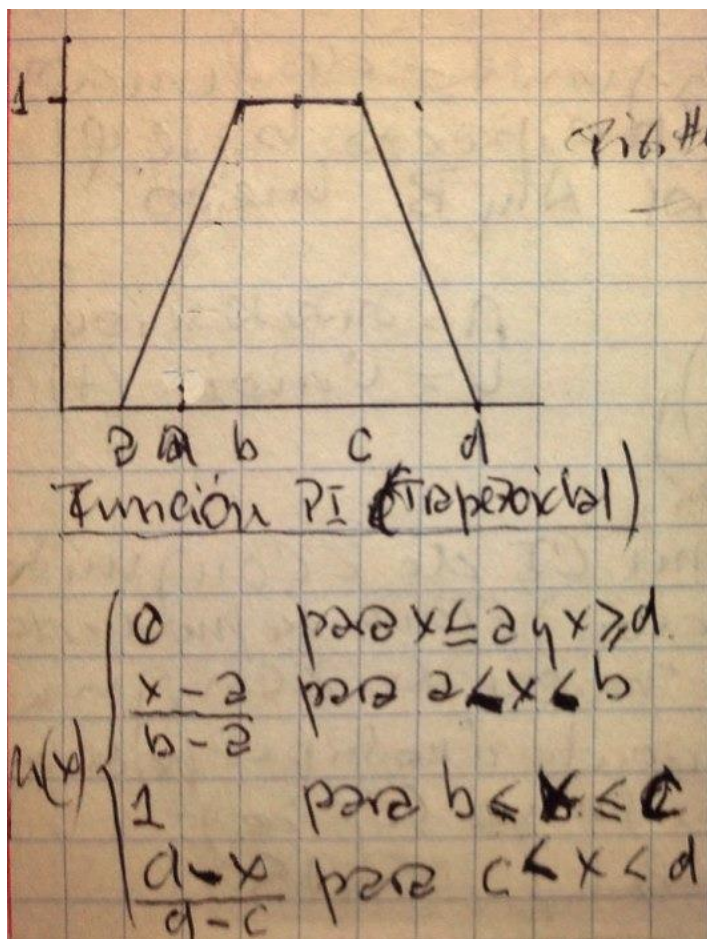 1
a b c d
Función PI (Trapezoidal)
0 para x ≤ a y x ≥ d.
x - a para a < x < b
b - a
μ(x)
1 para b ≤ x ≤ c
d - x para c < x < d
d - c